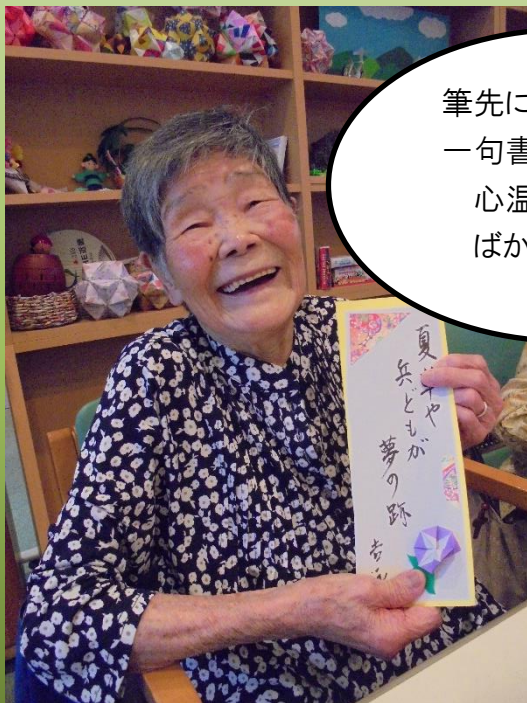 筆先に
一句書
心温
ばか
夏草や
兵どもが
夢の跡